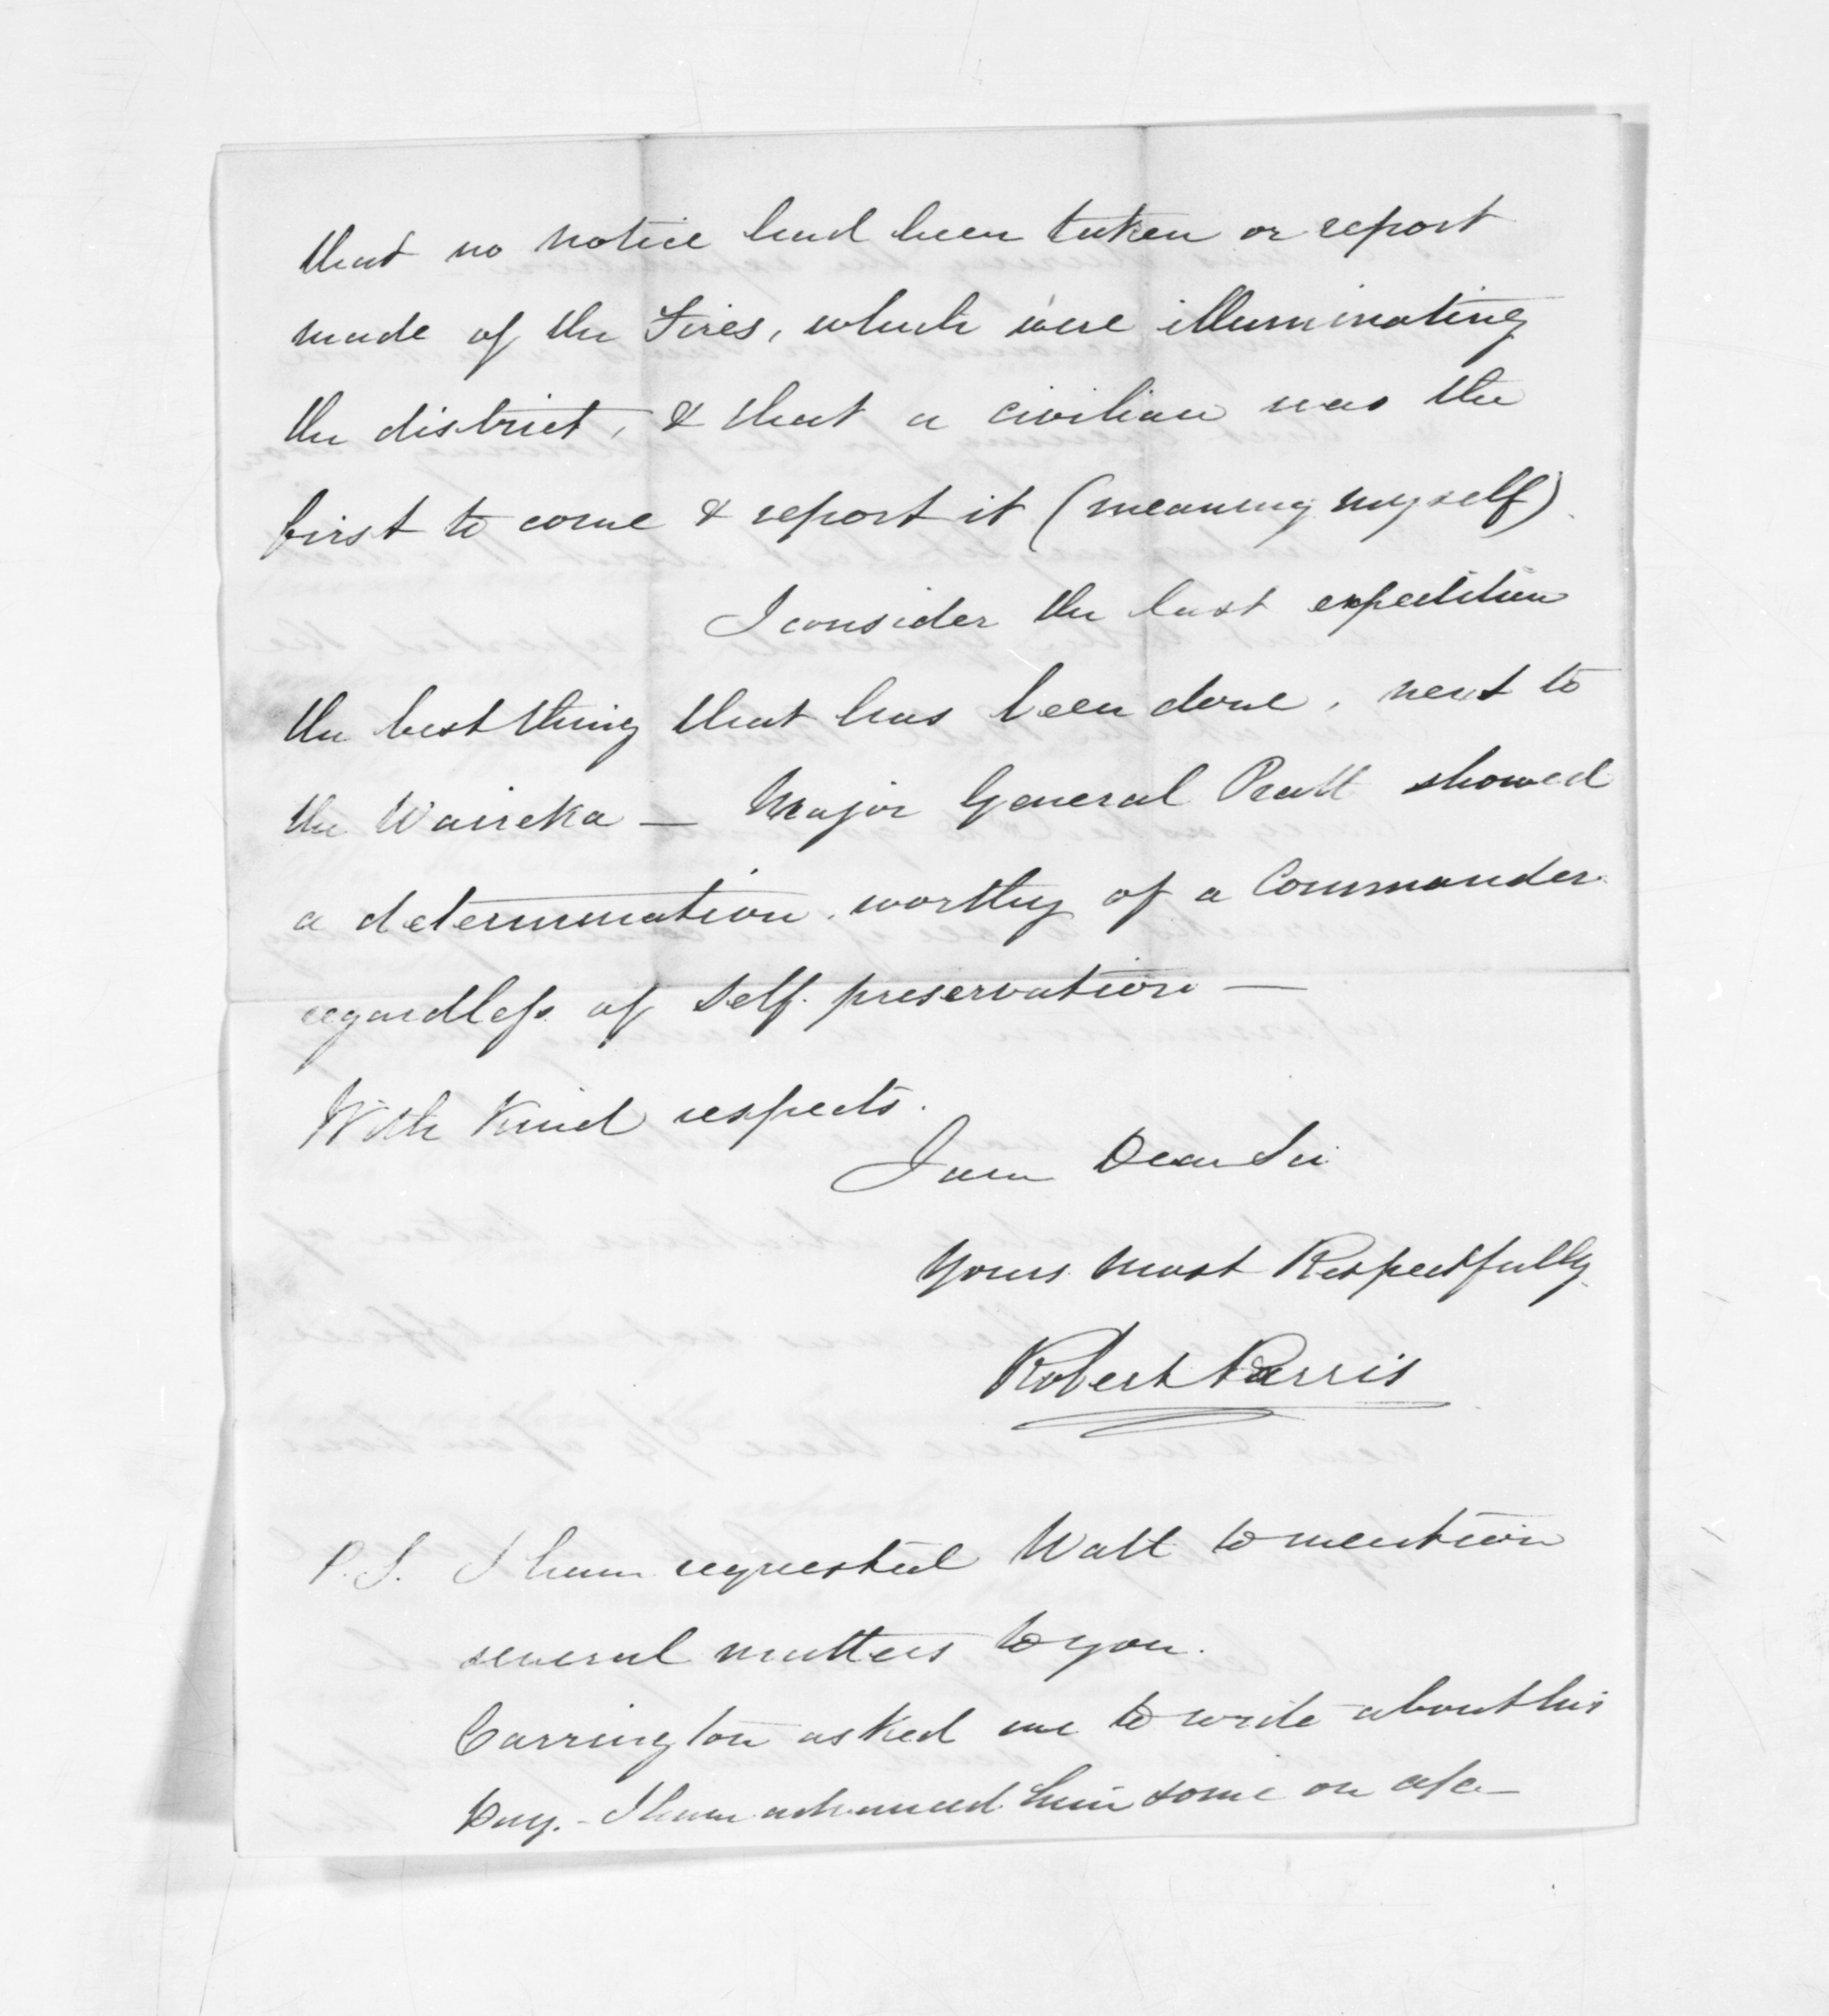 that no notice had been taken or report
made of the Fires, which were illuminating
the district, & that a civilian was the
first to come & report it (meaning myself).
I consider the last expedition
the best thing that has been done, next to
the Waireka — Major General Pratt showed
a determination, worthy of a Commander
regardless of self preservation —
With kind respects.
I am Dear Sir
Yours most Respectfully
Robert Parris
P.S. I have requested Watt to mention
several matters to you.
Carrington asked me to write about his
Pay. - I have advanced him some on a/c —